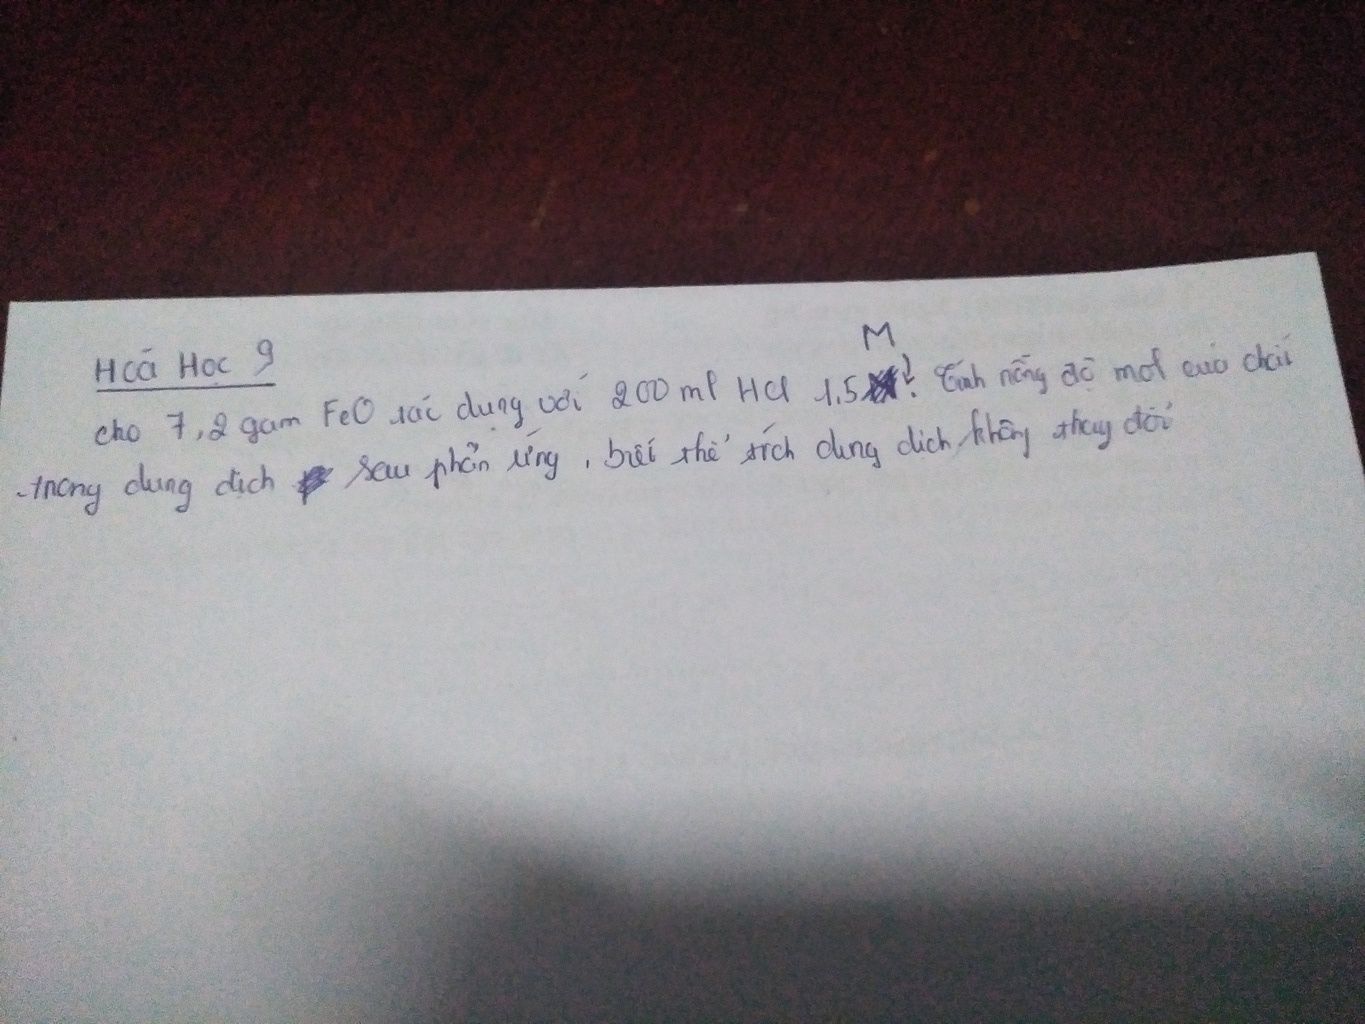 Hoá Học 9
M
cho 7,2 gam FeO tác dụng với 200 ml HCl 1,5 ? Tính nồng độ mol của chất
trong dung dịch sau phản ứng, biết thể tích dung dịch không thay đổi